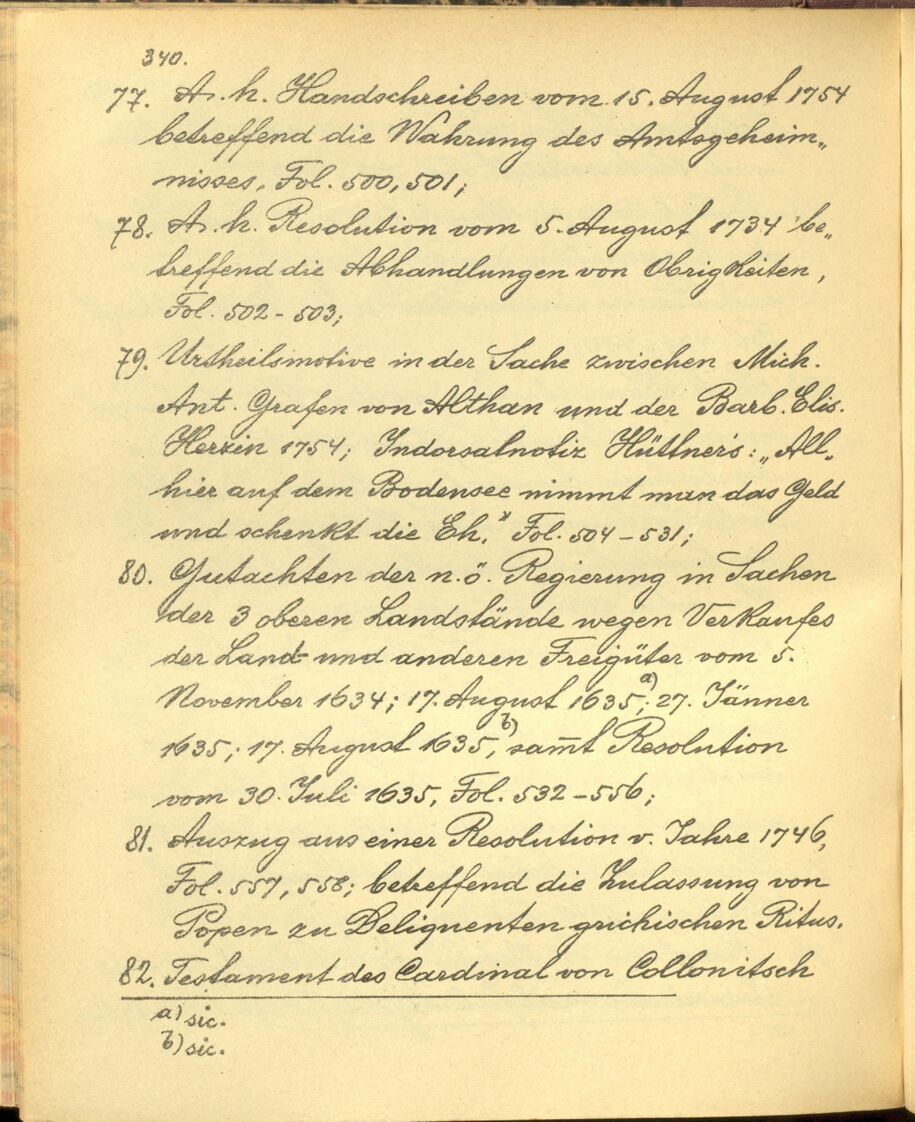 340.
77. A. h. Handschreiben vom 15. August 1754
betreffend die Wahrung des Amtsgeheim„
nisses, Fol. 500, 501;
78. A. h. Resolution vom 5. August 1734 be„
treffend die Abhandlungen von Obrigkeiten,
Fol. 502 - 503;
79. Urtheilsmotive in der Sache zwischen Mich.
Ant. Grafen von Althan und der Barb. Elis.
Herzin 1754; Indorsalnotiz Hüttner's: „All„
hier auf dem Bodensee nimmt man das Geld
und schenkt die Eh." Fol. 504 - 531;
80. Gutachten der n. ö. Regierung in Sachen
der 3 oberen Landstände wegen Verkaufes
der Land- und anderen Freigüter vom 5.
November 1634; 17. August 1635 a); 27. Jänner
1635; 17. August 1635, b) sam̄t Resolution
vom 30. Juli 1635, Fol. 532 - 556;
81. Auszug aus einer Resolution v. Jahre 1746,
Fol. 557, 558; betreffend die Zulassung von
Popen zu Deliquenten grichischen Ritus.
82. Testament des Cardinal von Collonitsch
a) sic.
b) sic.